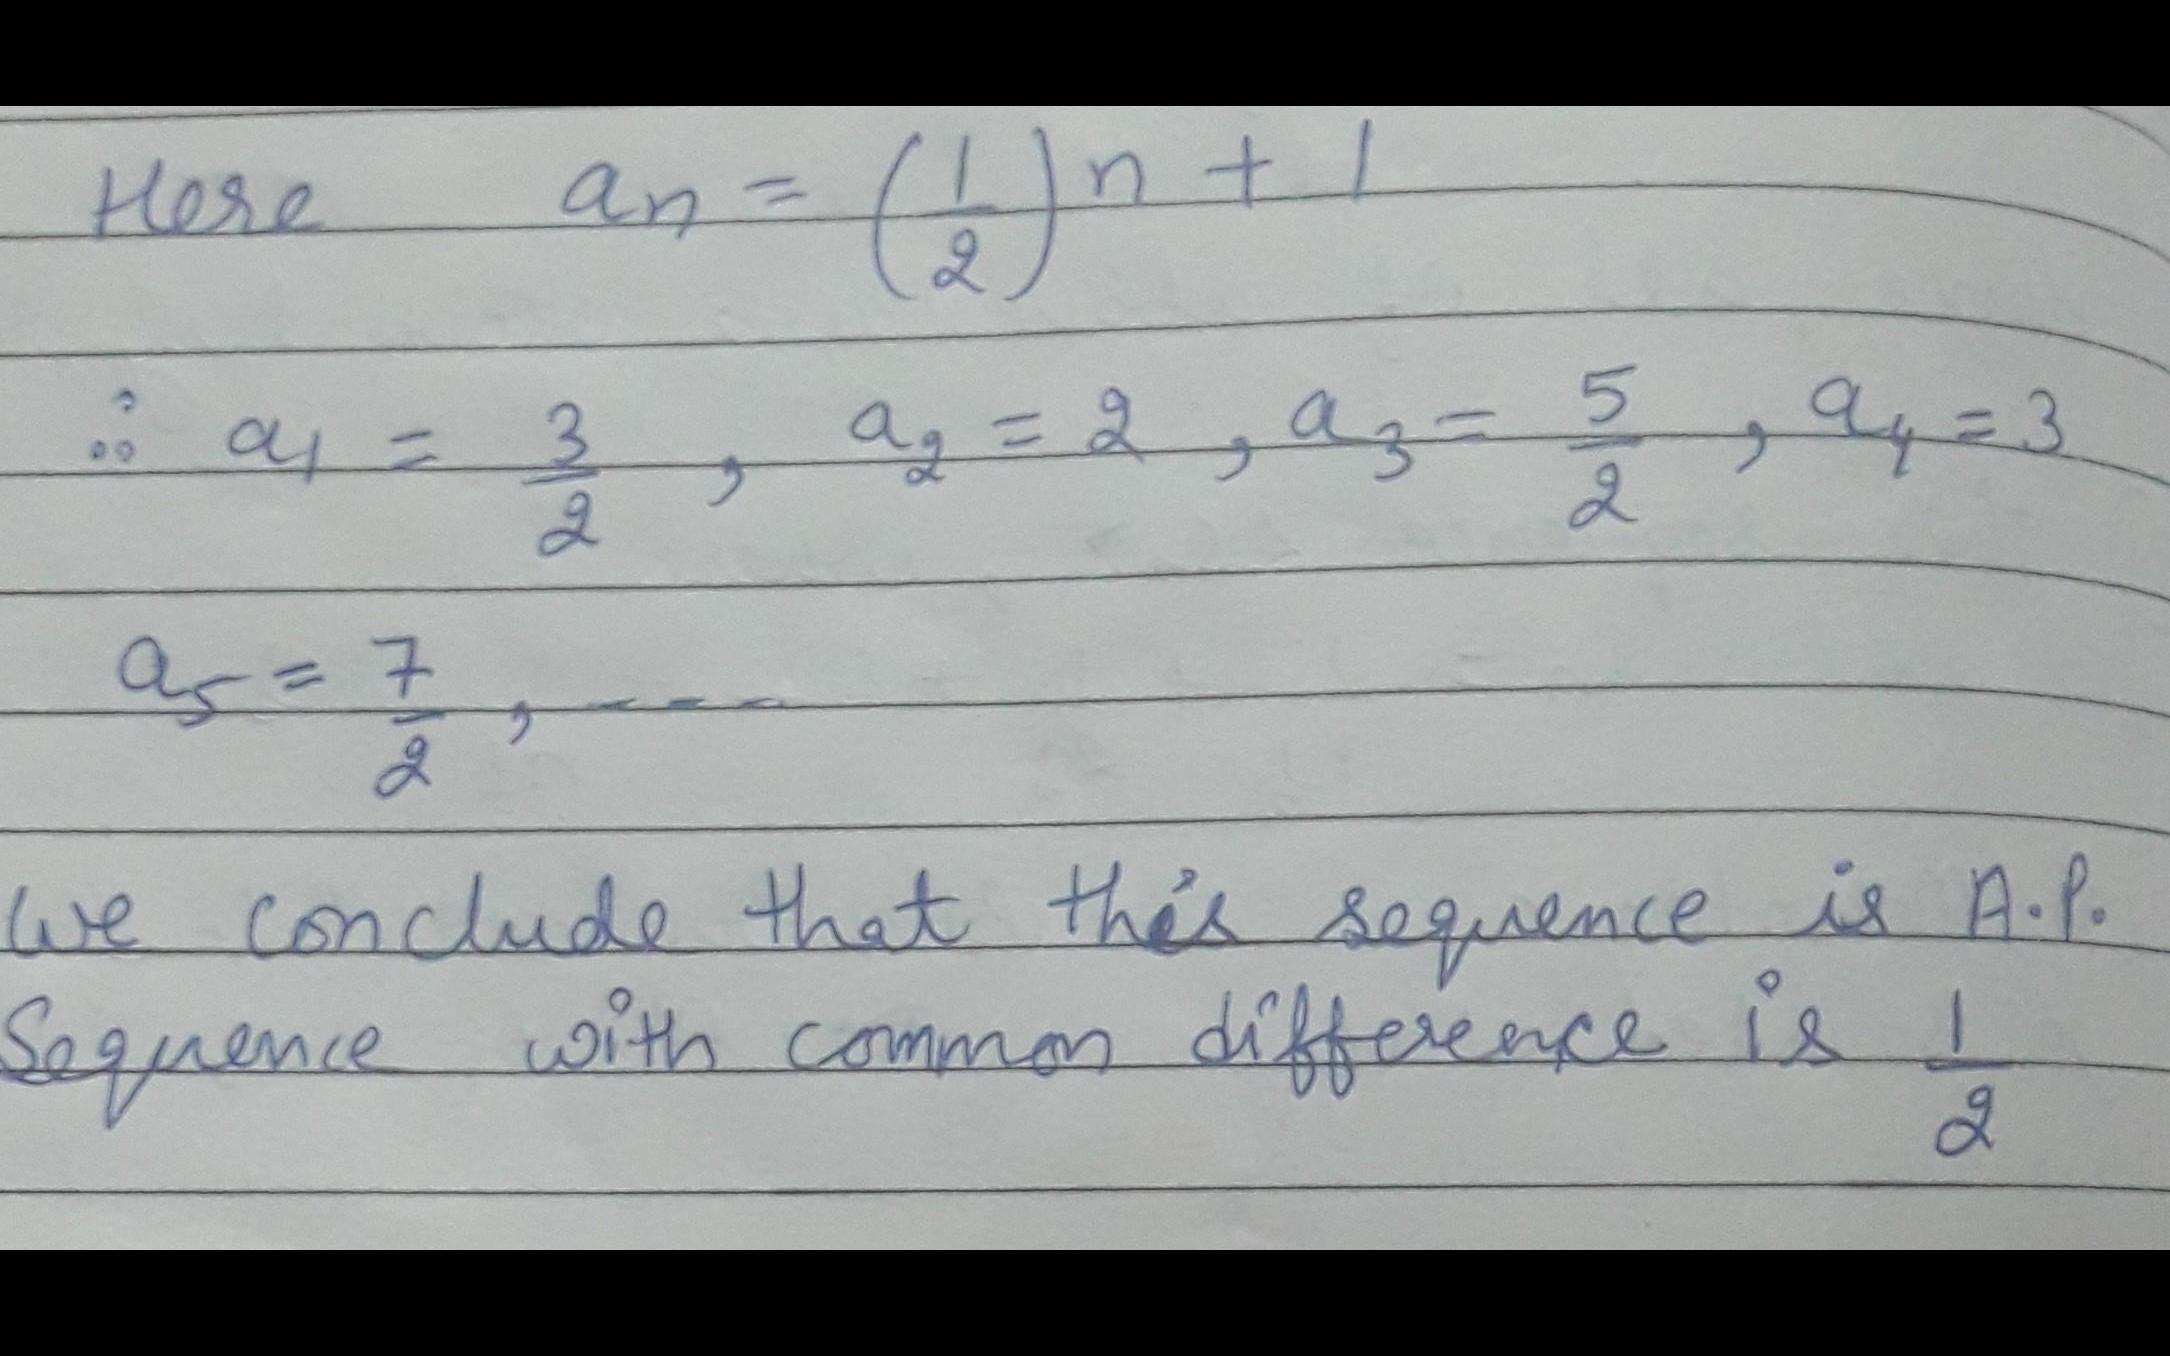 Here aₙ = (1/2) n + 1
∴ a₁ = 3/2 , a₂ = 2 , a₃ = 5/2 , a₄ = 3
a₅ = 7/2 , - - -
We conclude that this sequence is A.P.
Sequence with common difference is 1/2